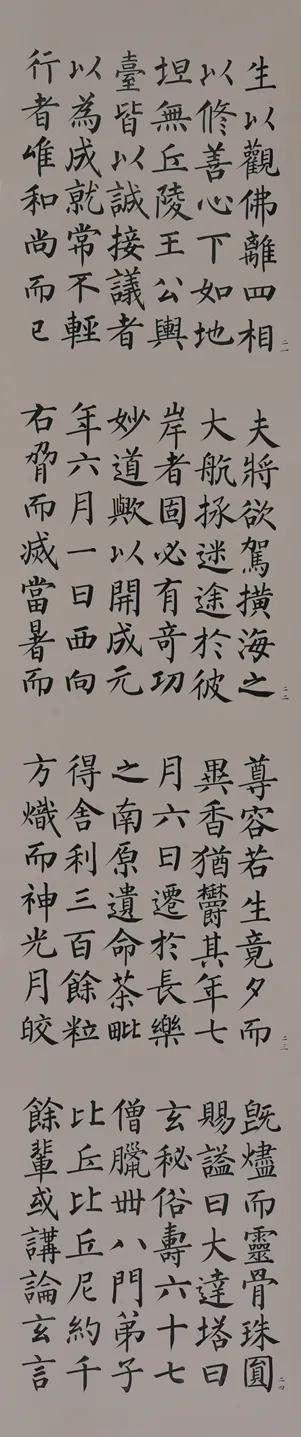 生以觀佛離四相
以修善心下如地
坦無丘陵王公輿
臺皆以誠接議者
以為成就常不輕
行者唯和尚而已
二一
夫將欲駕橫海之
大航拯迷途於彼
岸者固必有奇功
妙道歟以開成元
年六月一日西向
右脅而滅當暑而
二二
尊容若生竟夕而
異香猶鬱其年七
月六日遷於長樂
之南原遺命茶毗
得舍利三百餘粒
方熾而神光月皎
二三
既燼而靈骨珠圓
賜謚曰大達塔曰
玄秘俗壽六十七
僧臘卌八門弟子
比丘比丘尼約千
餘輩或講論玄言
二四